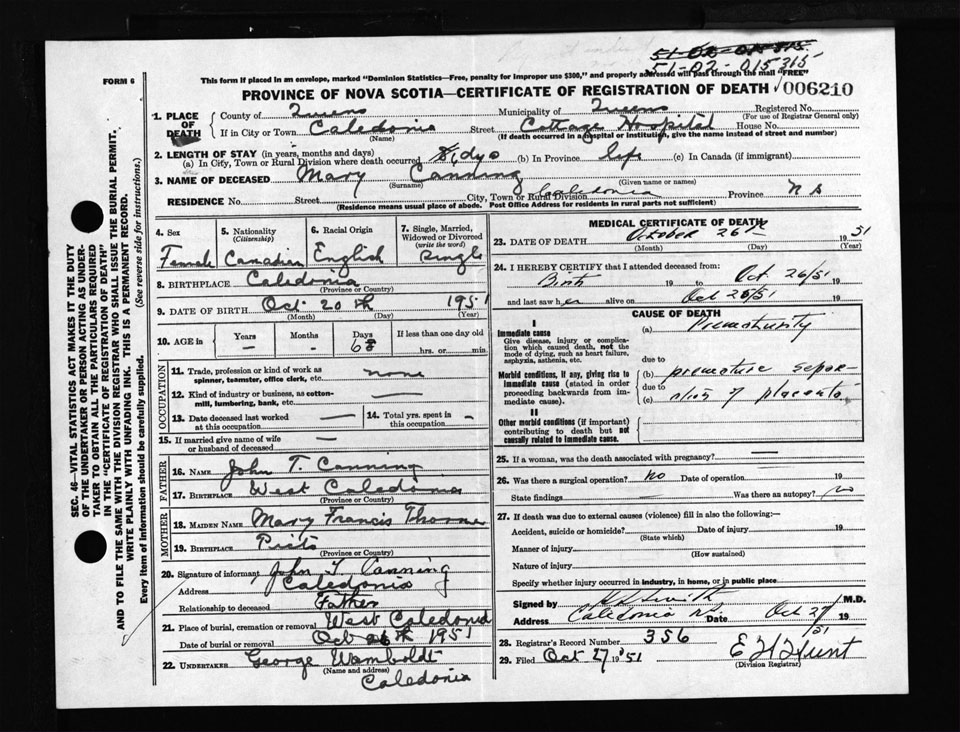 51-02-015315
FORM 6
This form if placed in an envelope, marked "Dominion Statistics—Free, penalty for improper use $300," and properly addressed will pass through the mail "FREE"
PROVINCE OF NOVA SCOTIA—CERTIFICATE OF REGISTRATION OF DEATH 006210
1. PLACE OF DEATH
County of Queens Municipality of Queens Registered No.
(For use of Registrar General only)
If in City or Town Caledonia Street Cottage Hospital House No.
(Name) (If death occurred in a hospital or institution, give the name instead of street and number)
2. LENGTH OF STAY (in years, months and days)
(a) In City, Town or Rural Division where death occurred dys (b) In Province life (c) In Canada (if immigrant)
3. NAME OF DECEASED Mary Canning
(Surname) (Given name or names)
RESIDENCE No. Street City, Town or Rural Division Caledonia Province N S
(Residence means usual place of abode. Post Office Address for residents in rural parts not sufficient)
4. Sex 5. Nationality (Citizenship) 6. Racial Origin 7. Single, Married, Widowed or Divorced (write the word)
Female Canadian English Single
8. BIRTHPLACE Caledonia
(Province or Country)
9. DATE OF BIRTH Oct 20th 1951
(Month) (Day) (Year)
10. AGE in Years Months Days If less than one day old
— — 6 hrs. or min.
OCCUPATION
11. Trade, profession or kind of work as spinner, teamster, office clerk, etc. none
12. Kind of industry or business, as cotton-mill, lumbering, bank, etc. —
13. Date deceased last worked at this occupation —
14. Total yrs. spent in this occupation —
15. If married give name of wife or husband of deceased —
FATHER
16. NAME John T. Canning
17. BIRTHPLACE West Caledonia
(Province or Country)
MOTHER
18. MAIDEN NAME Mary Francis Thorne
19. BIRTHPLACE
(Province or Country)
20. Signature of informant John T. Canning
Address Caledonia
Relationship to deceased Father
21. Place of burial, cremation or removal West Caledonia
Date of burial or removal Oct 26th 1951
22. UNDERTAKER George Wamboldt
(Name and address)
Caledonia
MEDICAL CERTIFICATE OF DEATH
23. DATE OF DEATH October 26th 1951
(Month) (Day) (Year)
24. I HEREBY CERTIFY that I attended deceased from:
Birth 19 to Oct. 26/51 19
and last saw her alive on Oct 26/51 19
CAUSE OF DEATH
I
Immediate cause
Give disease, injury or complication which caused death, not the mode of dying, such as heart failure, asphyxia, asthenia, etc.
(a) Prematurity
due to
Morbid conditions, if any, giving rise to immediate cause (stated in order proceeding backwards from immediate cause).
(b) premature separ-
due to
(c) ation of placenta
II
Other morbid conditions (if important) contributing to death but not causally related to immediate cause.
25. If a woman, was the death associated with pregnancy? —
26. Was there a surgical operation? no Date of operation 19
State findings Was there an autopsy? no
27. If death was due to external causes (violence) fill in also the following:—
Accident, suicide or homicide? Date of injury 19
(State which)
Manner of injury
(How sustained)
Nature of injury
Specify whether injury occurred in industry, in home, or in public place
Signed by Smith M.D.
Address Caledonia NS Date Oct 27/51 19
28. Registrar's Record Number 356
29. Filed Oct 27 1951 E H Hunt
(Division Registrar)
SEC. 46—VITAL STATISTICS ACT MAKES IT THE DUTY
OF THE UNDERTAKER OR PERSON ACTING AS UNDER-
TAKER TO OBTAIN ALL THE PARTICULARS REQUIRED
IN THE "CERTIFICATE OF REGISTRATION OF DEATH"
AND TO FILE THE SAME WITH THE DIVISION REGISTRAR WHO SHALL ISSUE THE BURIAL PERMIT.
WRITE PLAINLY WITH UNFADING INK. THIS IS A PERMANENT RECORD.
Every item of Information should be carefully supplied. (See reverse side for instructions.)